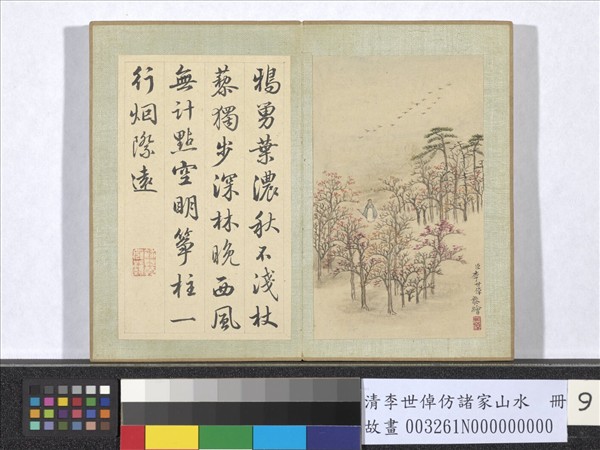 鴉舅葉濃秋不淺杖
藜獨步深林晚西風
無計點空明箏柱一
行烟際遠
臣李世倬恭繪
清李世倬仿諸家山水 冊 9
故畫 003261N000000000